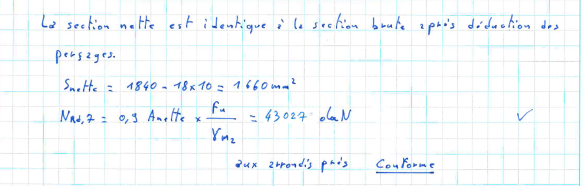 La section nette est identique à la section brute après déduction des
perçages.
Snette = 1840 - 18x10 = 1660 mm²
NRd,7 = 0,9 Anette x Fu / γM2 = 43027 daN ✓
aux arrondis près Conforme